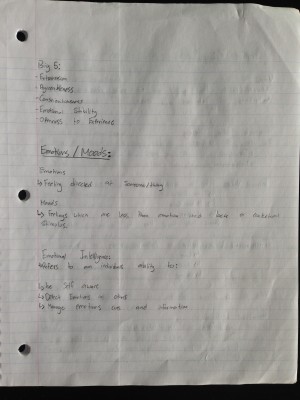 Big 5:
- Extraversion
- Agreeableness
- Conscientiousness
- Emotional Stability
- Openness to Experience
Emotions / Moods:
Emotions
↳ Feeling directed at Someone/thing
Moods
↳ Feelings which are less than emotion and have no contextual
Stimulus
Emotional Intelligence
↳ Refers to an individuals ability to:
↳ be Self aware
↳ Detect Emotions in others
↳ Manage emotions cues and information